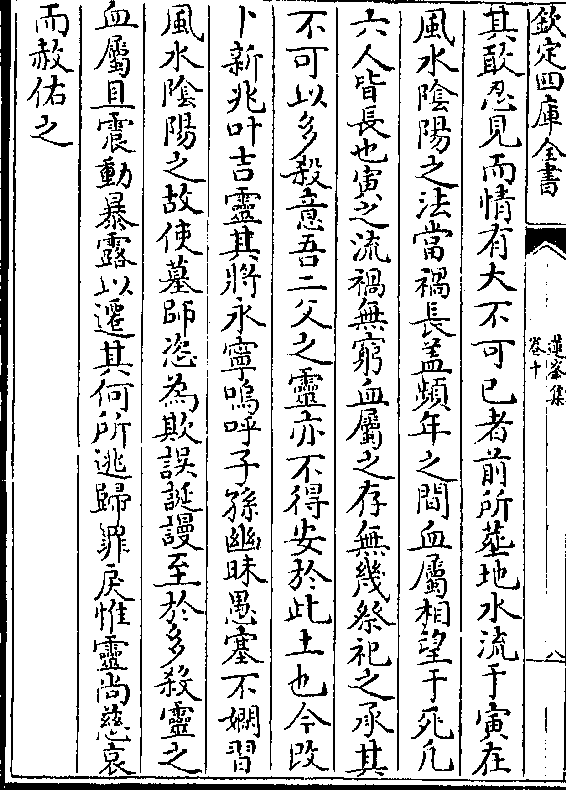 欽定四庫全書
蓮峯集
卷十
八
其敢忍見而情有大不可已者前所塟地水流于寅在
風水陰陽之法當禍長盖頻年之間血屬相望于死凡
六人皆長也寅之流禍無窮血屬之存無幾祭祀之承其
不可以多殺意吾二父之靈亦不得安於此土也今改
卜新兆叶吉靈其將永寧嗚呼子孫幽昧愚塞不嫻習
風水陰陽之故使墓師恣為欺誤誕謾至於多殺靈之
血屬且震動暴露以遷其何所逃歸罪戾惟靈尚慈哀
而赦佑之